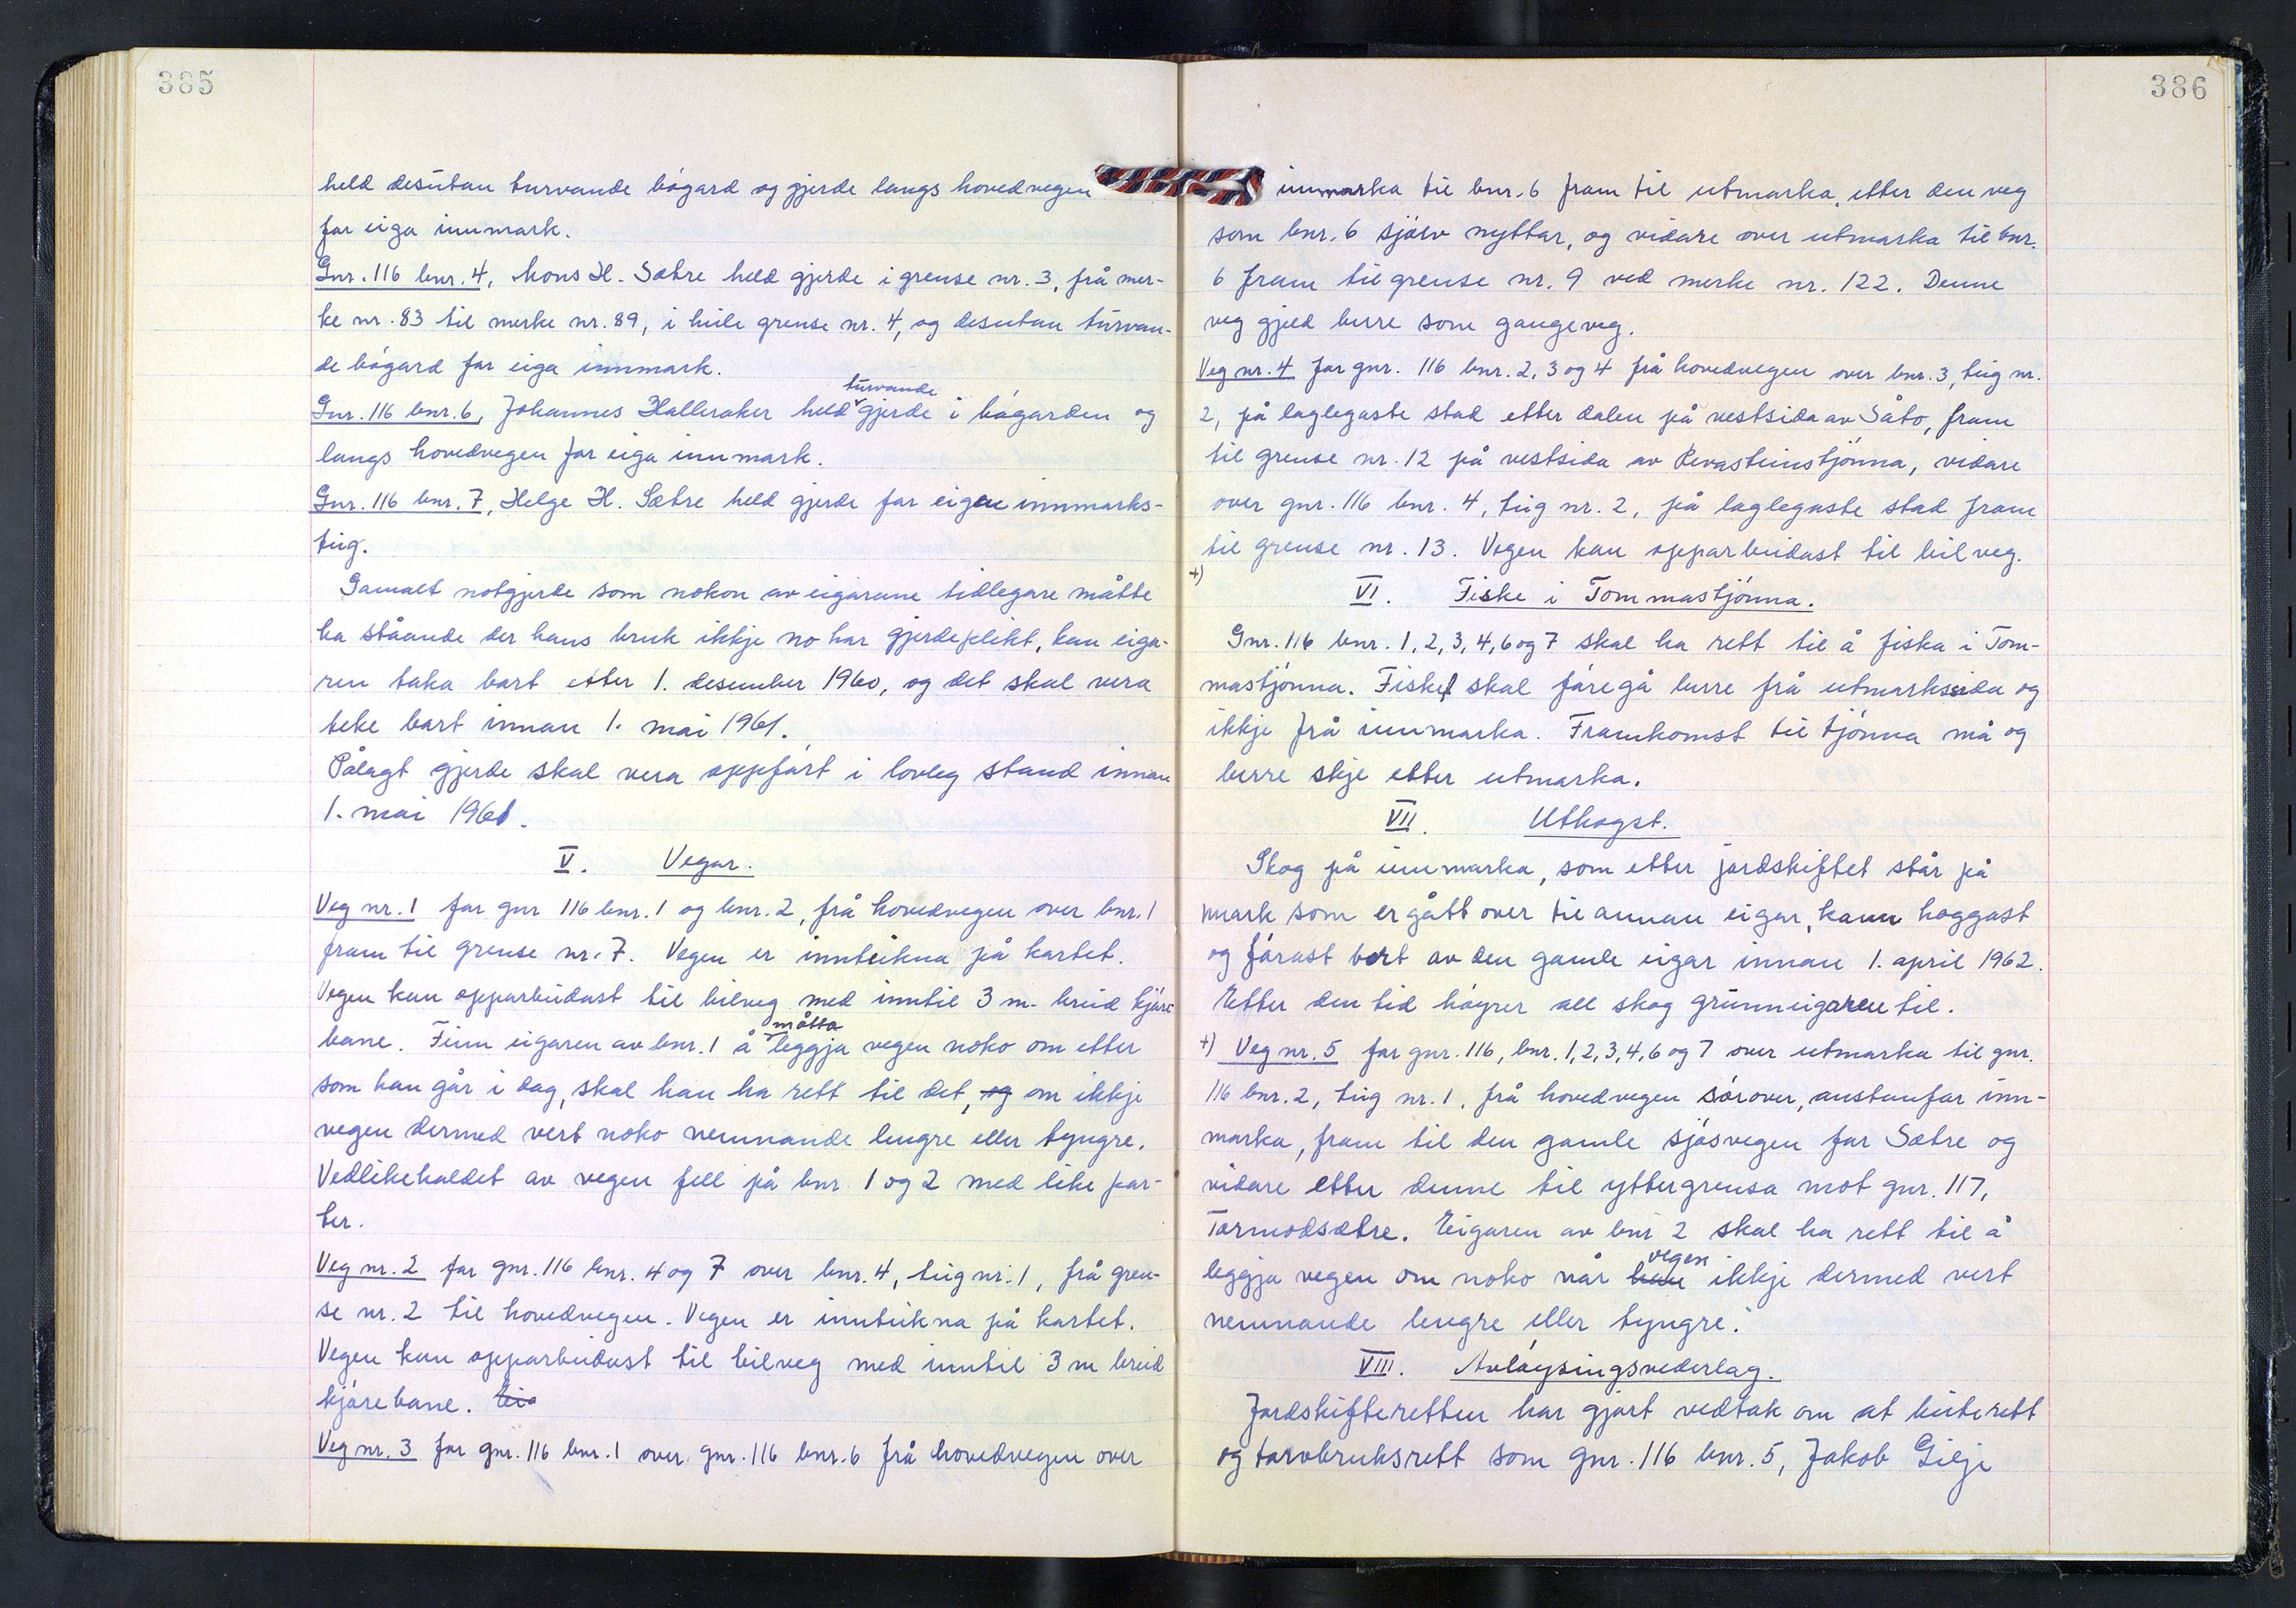 385
held desutan turvande bøgard og gjerde langs hovedvegen
for eiga innmark.
Gnr. 116 bnr. 4, Mons H. Sætre held gjerde i grense nr. 3, frå mer-
ke nr. 83 til merke nr. 89, i heile grense nr. 4, og desutan turvan-
de bøgard for eiga innmark.
turvande
Gnr. 116 bnr. 6, Johannes Halleraker held gjerde i bøgarden og
langs hovedvegen for eiga innmark.
Gnr. 116 bnr. 7, Helge H. Sætre held gjerde for eigen innmarks-
teig.
Gamalt notgjerde som nokon av eigarane tidlegare måtte
ha ståande der hans bruk ikkje no har gjerdeplikt, kan eiga-
ren taka bort etter 1. desember 1960, og det skal vera
teke bort innan 1. mai 1961.
Pålagt gjerde skal vera oppført i lovleg stand innan
1. mai 1961.
V. Vegar.
Veg nr. 1 for gnr 116 bnr. 1 og bnr. 2, frå hovedvegen over bnr. 1
fram til grense nr. 7. Vegen er innteikna på kartet.
Vegen kan opparbeidast til bilveg med inntil 3 m. breid kjøre-
måtta
bane. Finn eigaren av bnr. 1 å leggja vegen noko om etter
som han går i dag, skal han ha rett til det, og om ikkje
vegen dermed vert noko nemnande lengre eller tyngre.
Vedlikehaldet av vegen fell på bnr. 1 og 2 med like par-
ter.
Veg nr. 2 for gnr. 116 bnr. 4 og 7 over bnr. 4, teig nr. 1, frå gren-
se nr. 2 til hovedvegen. Vegen er innteikna på kartet.
Vegen kan opparbeidast til bilveg med inntil 3 m breid
kjørebane.
Veg nr. 3 for gnr. 116 bnr. 1 over gnr. 116 bnr. 6 frå hovedvegen over
386
innmarka til bnr. 6 fram til utmarka, etter den veg
som bnr. 6 sjølv nyttar, og vidare over utmarka til bnr.
6 fram til grense nr. 9 ved merke nr. 122. Denne
veg gjeld berre som gangeveg.
Veg nr. 4 for gnr. 116 bnr. 2, 3 og 4 frå hovedvegen over bnr. 3, teig nr.
2, på laglegaste stad etter dalen på vestsida av Såto, fram
til grense nr. 12 på vestsida av Revasteinstjønna, vidare
over gnr. 116 bnr. 4, teig nr. 2, på laglegaste stad fram
til grense nr. 13. Vegen kan opparbeidast til bilveg.
+)
VI. Fiske i Tommastjønna.
Gnr. 116 bnr. 1, 2, 3, 4, 6 og 7 skal ha rett til å fiska i Tom-
mastjønna. Fisket skal føregå berre frå utmarkssida og
ikkje frå innmarka. Framkomst til tjønna må og
berre skje etter utmarka.
VII. Uthogst.
Skog på innmarka, som etter jordskiftet står på
mark som er gått over til annan eigar, kann hoggast
og førast bort av den gamle eigar innan 1. april 1962.
Etter den tid høyrer all skog grunneigaren til.
+) Veg nr. 5 for gnr. 116, bnr. 1, 2, 3, 4, 6 og 7 over utmarka til gnr.
116 bnr. 2, teig nr. 1, frå hovedvegen sørover, austanfor inn-
marka, fram til den gamle sjøsvegen for Sætre og
vidare etter denne til yttergrensa mot gnr. 117,
Tormodsætre. Eigaren av bnr 2 skal ha rett til å
vegen
leggja vegen om noko når han ikkje dermed vert
nemnande lengre eller tyngre.
VIII. Avløysingsvederlag.
Jordskifteretten har gjort vedtak om at beiterett
og torvbruksrett som gnr. 116 bnr. 5, Jakob Gilje